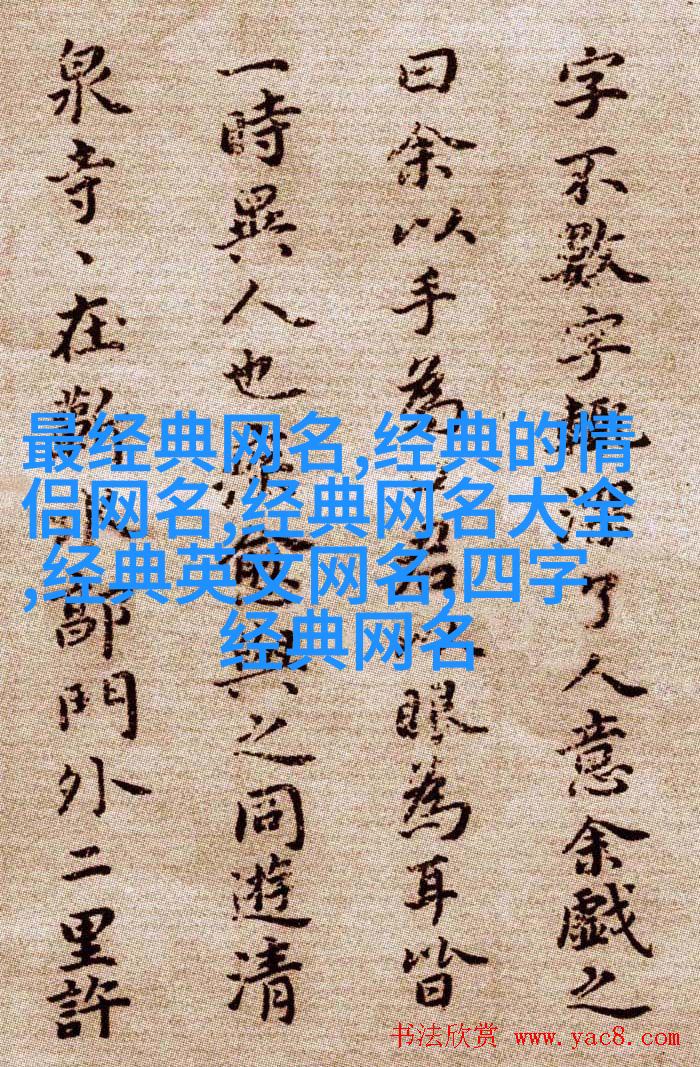 字不數字深了人意余戲之
曰余以手為眼為耳皆
一時異人也與之同遊清
泉寺、在蘄水郭門外二里許
最经典网名,经典的情
侣网名,经典网名大全
,经典英文网名,四字
经典网名
书法欣赏 www.yac8.com